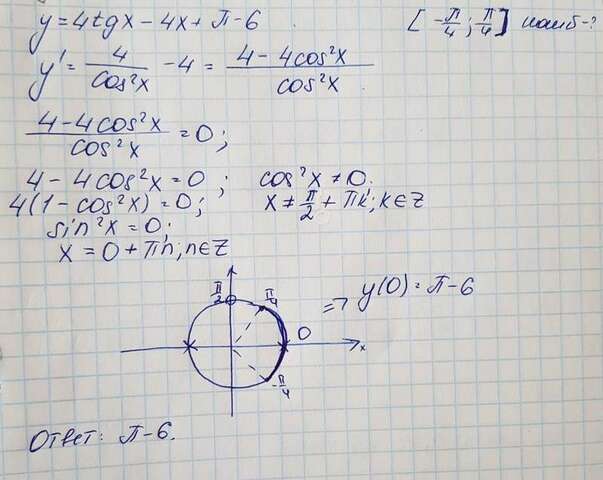 y = 4tgx - 4x + π - 6 [-π/4; π/4] наиб-?
y' = 4/cos²x - 4 = (4 - 4cos²x)/cos²x
(4 - 4cos²x)/cos²x = 0;
4 - 4cos²x = 0; cos²x ≠ 0.
4(1 - cos²x) = 0; x ≠ π/2 + πk; k∈Z
sin²x = 0;
x = 0 + πn; n∈Z
π/2 π/4 ⇒ y(0) = π - 6
0 x
-π/4
Ответ: π-6.